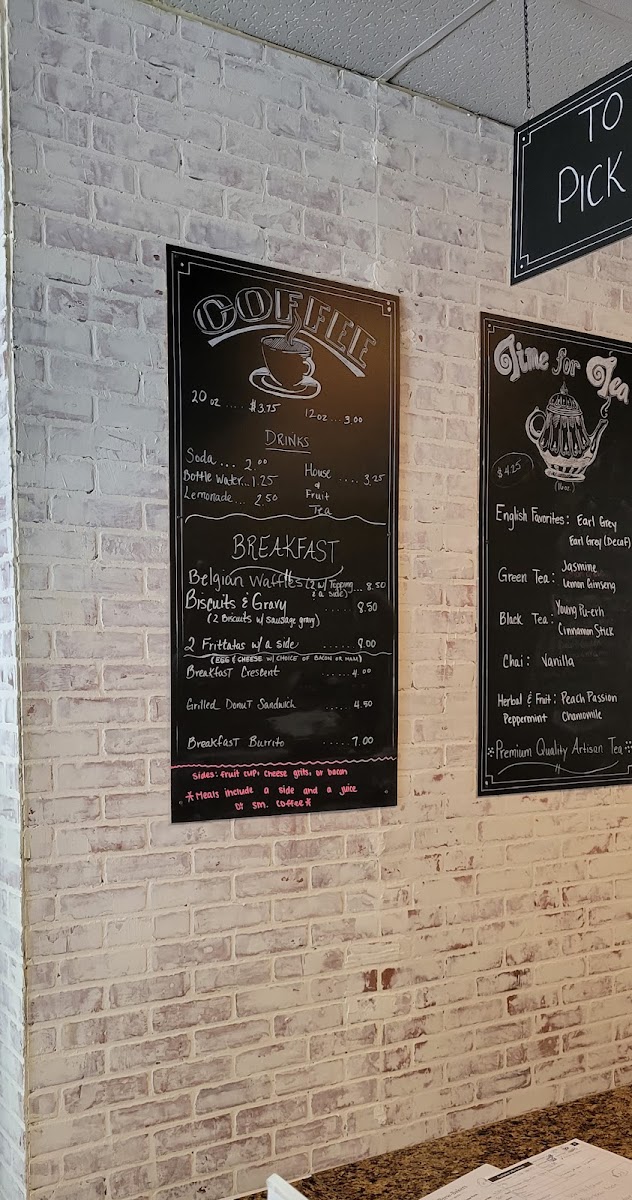 COFFEE
20 oz .... $3.75
12 oz ... 3.00
DRINKS
Soda ... 2.00
Bottle Water...1.25
Lemonade... 2.50
House .... 3.25
&
Fruit
Tea
BREAKFAST
Belgian Waffles (2 w/ Topping... 8.50
& a side)
Biscuits & Gravy .... 8.50
(2 Biscuits w/ sausage gravy)
2 Frittatas w/ a side ...... 9.00
(EGG & CHEESE w/ CHOICE OF BACON OR HAM)
Breakfast Crescent .... 4.00
Grilled Donut Sandwich ..... 4.50
Breakfast Burrito ...... 7.00
Sides: fruit cup, cheese grits, or bacon
*Meals include a side and a juice
or sm. coffee*
TO
PICK
Time for Tea
$4.25
(16oz)
English Favorites: Earl Grey
Earl Grey (Decaf)
Green Tea: Jasmine
Lemon Ginseng
Black Tea: Young Pu-erh
Cinnamon Stick
Chai: Vanilla
Herbal & Fruit: Peach Passion
Peppermint Chamomile
Premium Quality Artisan Tea